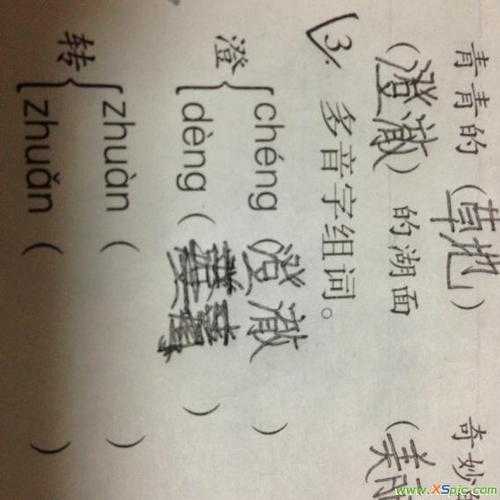 青青的（草地） 奇妙
（澄澈）的湖面 （美
3. 多音字组词。
澄 { chéng（澄澈）
dèng（ ）
转 { zhuàn（ ）
zhuǎn（ ）
www.XSpic.com